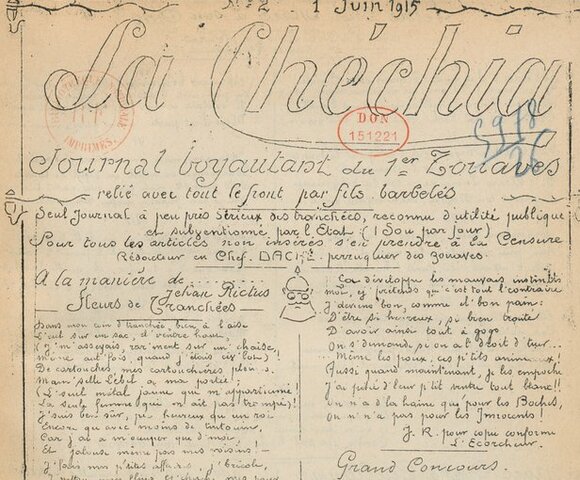 No 2. 1 Juin 1915
La Chéchia
IMPRIMÉS
DON
151221
Journal boyautant du 1er Zouaves
relié avec tout le front par fils barbelés
Seul Journal à peu près Sérieux des tranchées, reconnu d'utilité publique
et subventionné par l'État (1 Sou par Jour)
Pour tous les articles non insérés s'en prendre à la Censure
Rédacteur en Chef. perruquier des Zouaves
A la manière de ........
Jehan Rictus
Fleurs de Tranchées
Dans mon coin d'tranchée, bien à l'aise
L'cul sur un sac, l'ventre haut,
(J'm'asseyais rar'ment sur un' chaise,
même aut'fois, quand j'étais civ'lot)!
De cartouches, mes cartouchières pleines.
Mam'selle Lebel à ma portée!
(L'seul métal jaune qui m'appartienne!
La seule femme qui m'ait pas trompé)!
J'suis ben sûr, pu heureux qu'un roi
Encore que avec moins de tintouin,
Car j'ai à m'occuper que d'moi,
Et j'alouse même pas mes voisins!-
J'fais mes p'tites affaires, j'bricole,
Ça développe les mauvais instincts
moi, j'prétends qu'c'est tout l'contraire
J'deviens bon, comme d'bon pain:
D'être si heureux, si ben traité
D'avoir ainsi tout à gogo
On s'demand, si on a l'droit d'tuer...
... Même les poux, ces p'tits animeaux;
Aussi quand maint'nant, je les empoche
J'ai pitié d'leur p'tit ventre tout blanc!!
On n'a d'la haine que pour les Boches,
On n'n'a pas pour les Innocents!
J. R. pour copie conforme
L'Écorcheur.
Grand Concours.